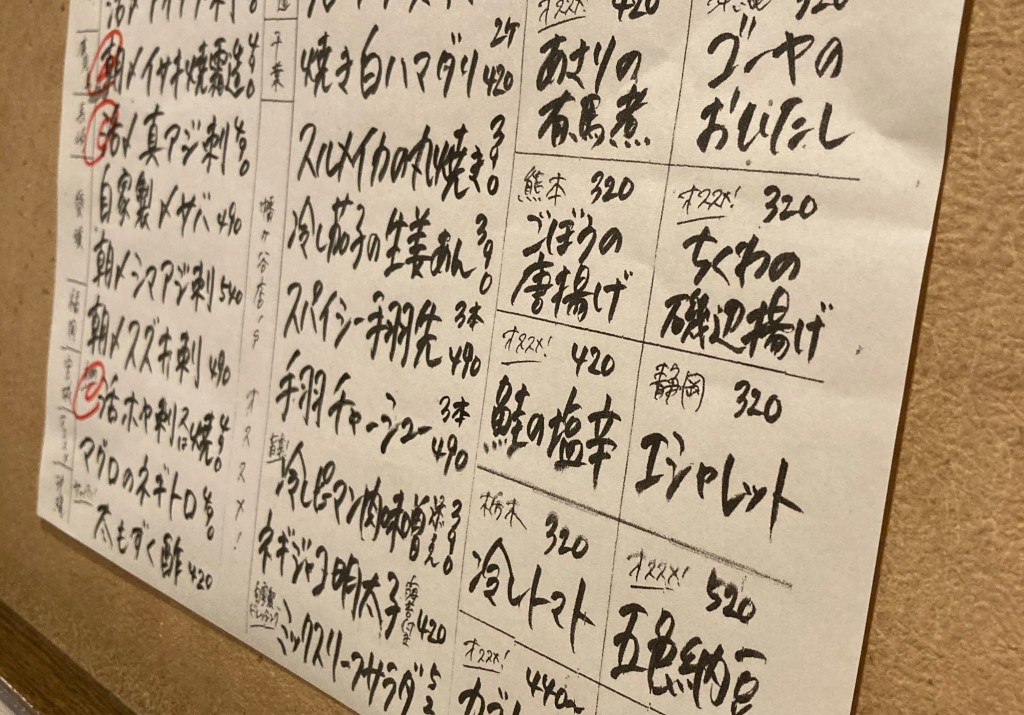 朝〆イサキ焼霜造 490
活〆真アジ刺
自家製〆サバ 490
朝〆シマアジ刺 540
朝〆スズキ刺 490
活ホヤ刺又は焼
マグロのネギトロ
太もずく酢 420
千葉
幡ヶ谷店's オススメ!
2ケ
焼き白ハマグリ 420
スルメイカの丸焼き 390
冷し茄子の生姜あん 390
スパイシー手羽先 3本 490
手羽チャーシュー 3本 490
冷しピーマン肉味噌添え 390
ネギジャコ明太子 420
自家製ドレッシング
ミックスリーフサラダ
オススメ! 420
あさりの
有馬煮
熊本 320
ごぼうの
唐揚げ
オススメ! 420
鮭の塩辛
栃木 320
冷しトマト
オススメ! 440
320
ゴーヤの
おひたし
オススメ! 320
ちくわの
磯辺揚げ
静岡 320
エシャレット
オススメ! 520
五色納豆